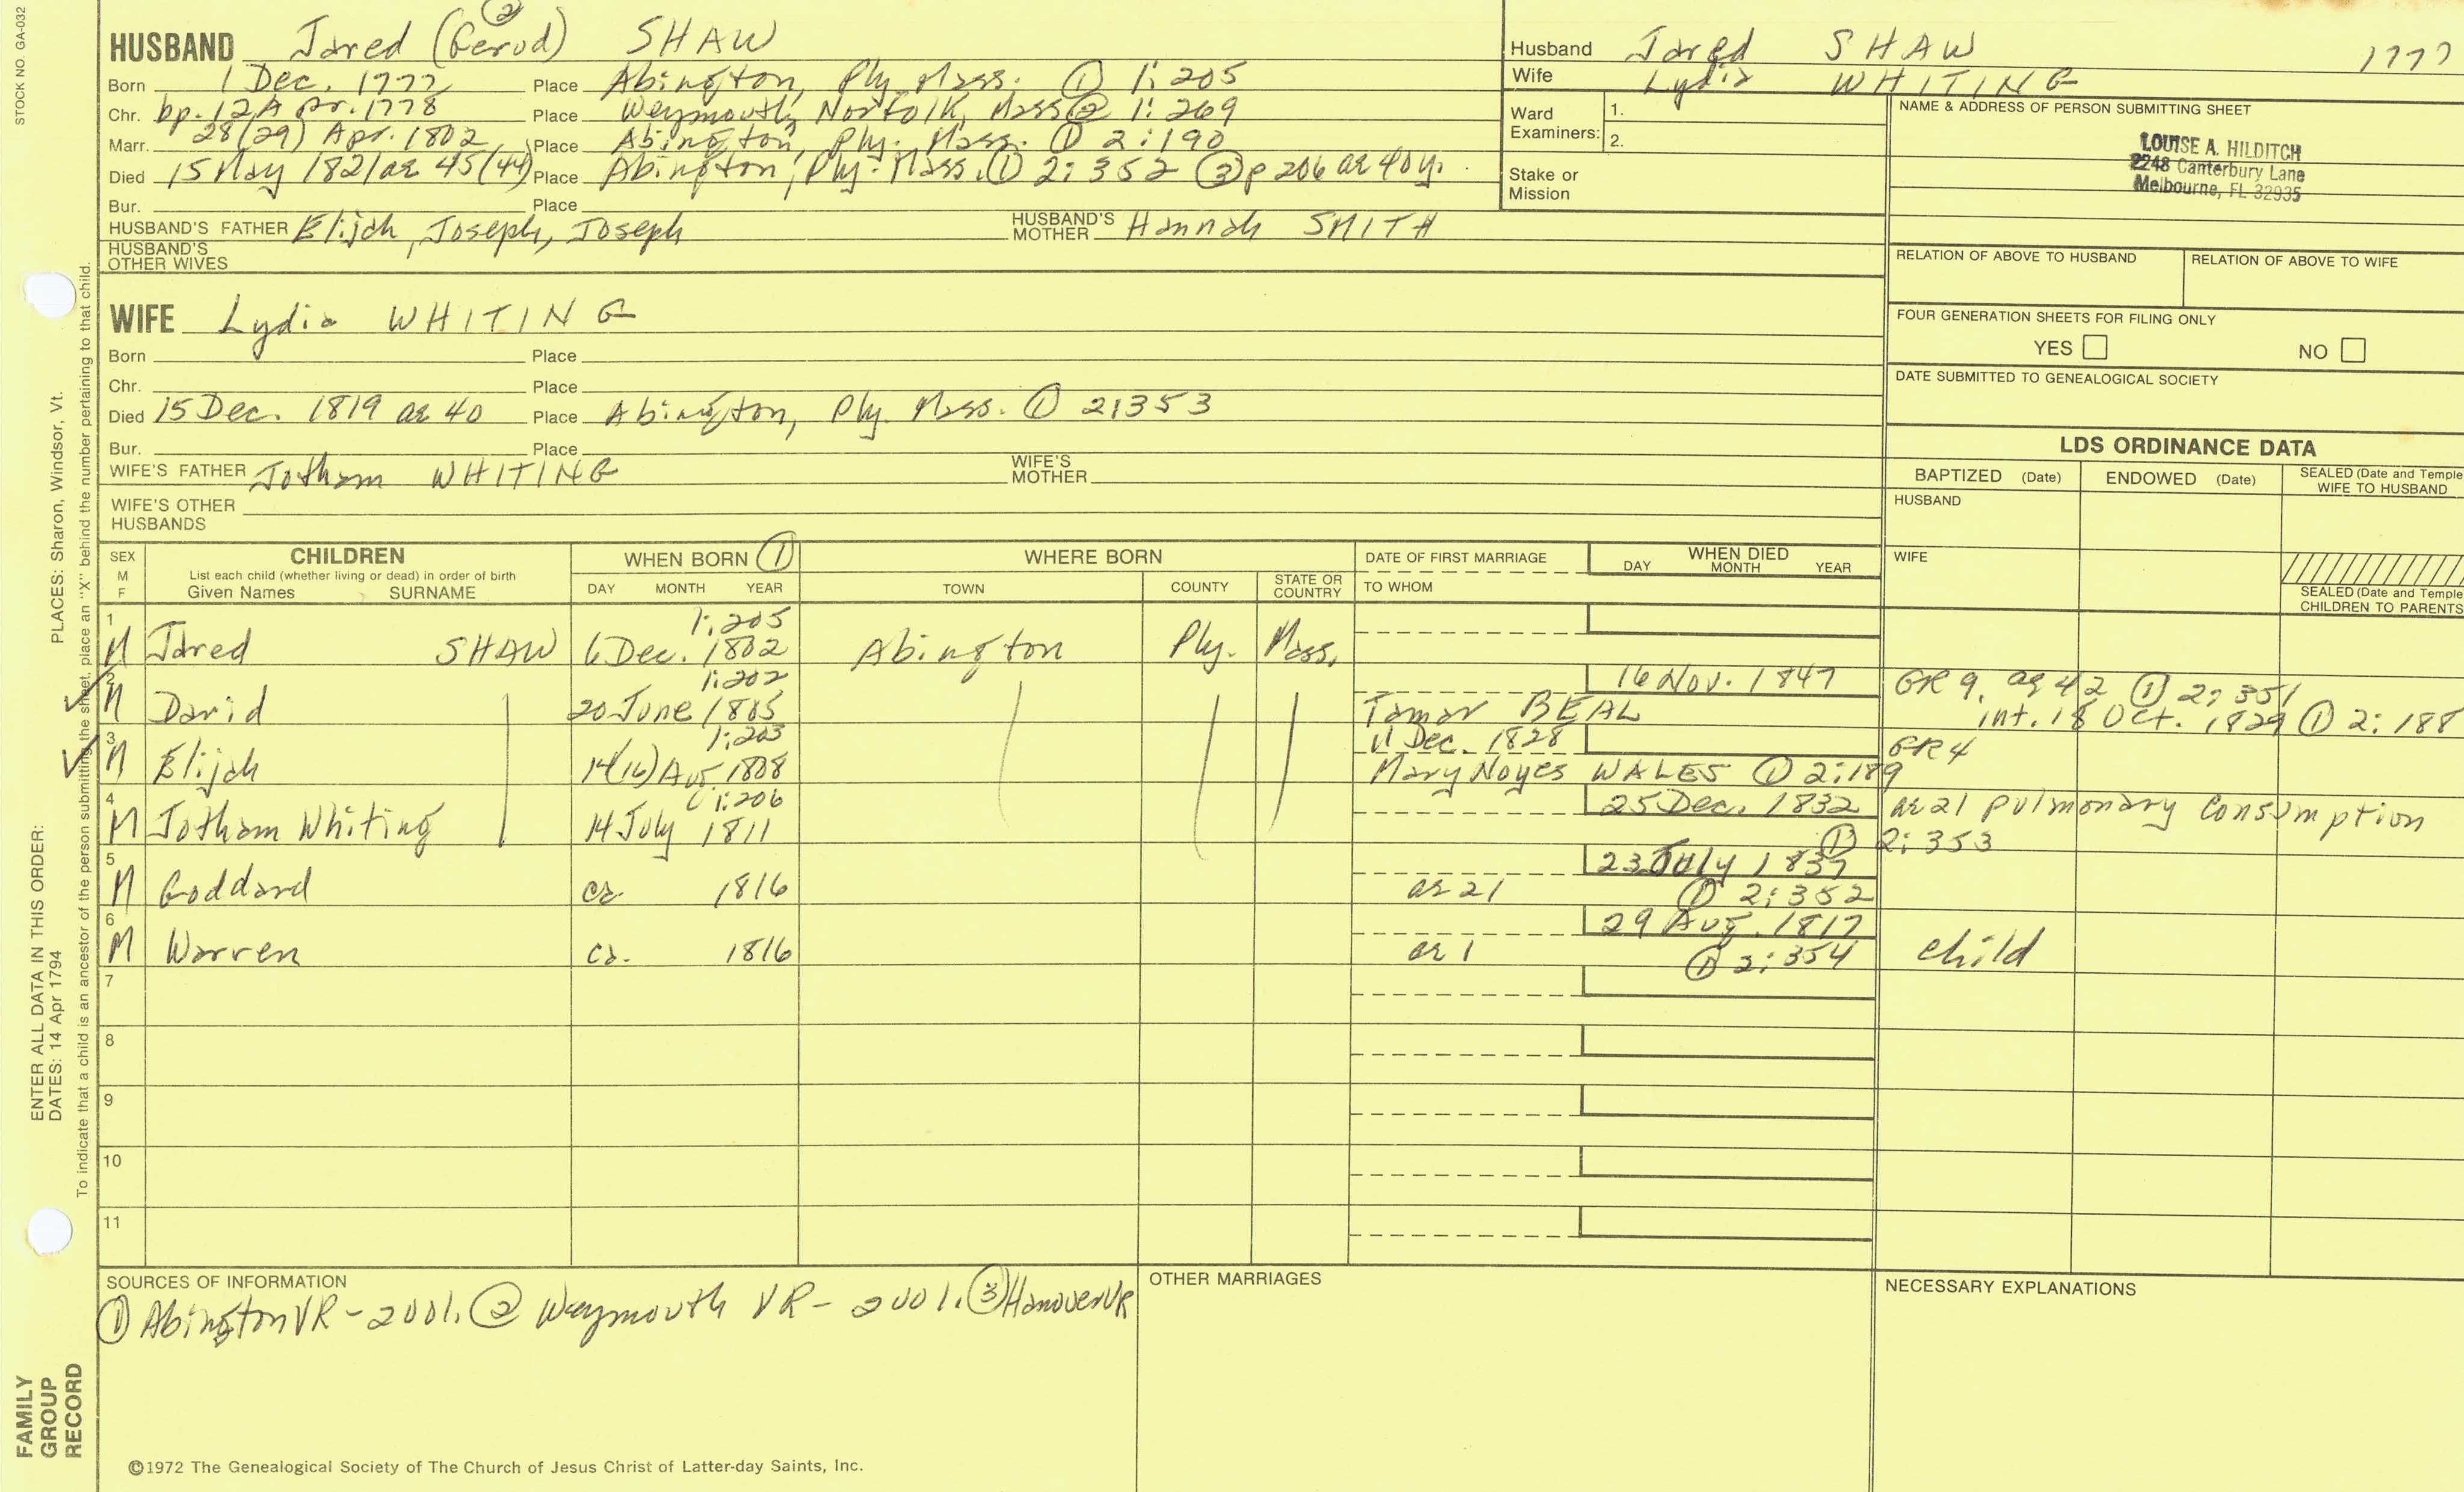 STOCK NO. GA-032
②
HUSBAND Jared (Gerud) SHAW
Born 1 Dec. 1777 Place Abington, Ply. Mass. ① 1:205
Chr. bp. 12 Apr. 1778 Place Weymouth, Norfolk, Mass ② 1:269
Marr. 28(29) Apr. 1802 Place Abington, Ply. Mass. ① 2:190
Died 15 May 1821 ae 45(44) Place Abington, Ply. Mass. ① 2:352 ③ p 206 ae 40y.
Bur. Place
HUSBAND'S FATHER Elijah, Joseph, Joseph HUSBAND'S MOTHER Hannah SMITH
HUSBAND'S OTHER WIVES
Husband Jared SHAW 1777
Wife Lydia WHITING
Ward Examiners: 1.
2.
Stake or Mission
NAME & ADDRESS OF PERSON SUBMITTING SHEET
LOUISE A. HILDITCH
2248 Canterbury Lane
Melbourne, FL 32935
RELATION OF ABOVE TO HUSBAND RELATION OF ABOVE TO WIFE
FOUR GENERATION SHEETS FOR FILING ONLY
YES NO
DATE SUBMITTED TO GENEALOGICAL SOCIETY
WIFE Lydia WHITING
Born Place
Chr. Place
Died 15 Dec. 1819 ae 40 Place Abington, Ply. Mass. ① 2:353
Bur. Place
WIFE'S FATHER Jotham WHITING WIFE'S MOTHER
WIFE'S OTHER HUSBANDS
LDS ORDINANCE DATA
BAPTIZED (Date) ENDOWED (Date) SEALED (Date and Temple
WIFE TO HUSBAND
HUSBAND
WIFE
SEALED (Date and Temple
CHILDREN TO PARENTS
SEX M F
CHILDREN
List each child (whether living or dead) in order of birth
Given Names SURNAME
WHEN BORN ①
DAY MONTH YEAR
WHERE BORN
TOWN COUNTY STATE OR COUNTRY
DATE OF FIRST MARRIAGE
TO WHOM
WHEN DIED
DAY MONTH YEAR
1 1:205
M Jared SHAW 6 Dec. 1802 Abington Ply. Mass.
2 1:202 16 Nov. 1847 GR 9, ae 42 ① 2:351
M David 20 June 1805 Tamar BEAL int. 18 Oct. 1829 ① 2:188
3 1:203 11 Dec. 1828 GR4
M Elijah 14(16) Aug 1808 Mary Noyes WALES ① 2:189
4 1:206 25 Dec. 1832 ae 21 pulmonary consumption
M Jotham Whiting 14 July 1811 ① 2:353
5 23 July 1837
M Goddard ca. 1816 ae 21 ① 2:352
6 29 Aug. 1817
M Warren ca. 1816 ae 1 ① 2:354 child
7
8
9
10
11
SOURCES OF INFORMATION
① Abington VR - 2001. ② Weymouth VR - 2001. ③ Hanover VR
OTHER MARRIAGES
NECESSARY EXPLANATIONS
©1972 The Genealogical Society of The Church of Jesus Christ of Latter-day Saints, Inc.
PLACES: Sharon, Windsor, Vt.
To indicate that a child is an ancestor of the person submitting the sheet, place an "X" behind the number pertaining to that child.
ENTER ALL DATA IN THIS ORDER:
DATES: 14 Apr 1794
FAMILY
GROUP
RECORD